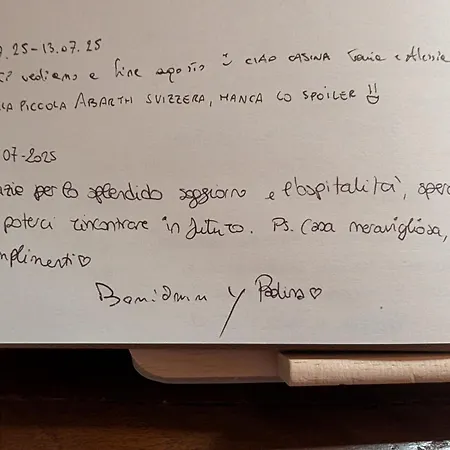 .25-13.07.25
vediamo a fine agosto CIAO CASINA Tania e Alessia
LA PICCOLA ABARTH SVIZZERA, MANCA LO SPOILER
07-2025
azie per lo splendido soggiorno e l'ospitalità, spero
poterci rincontrare in futuro. Ps. Casa meravigliosa,
mplimenti♡
y ♡